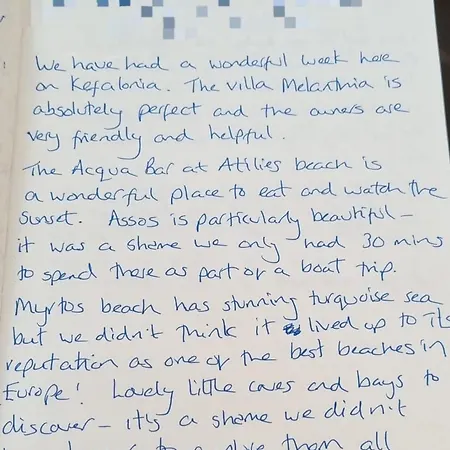 We have had a wonderful week here
on Kefalonia. The villa Melanthia is
absolutely perfect and the owners are
very friendly and helpful.
The Acqua Bar at Atilies beach is
a wonderful place to eat and watch the
sunset. Assos is particularly beautiful –
it was a shame we only had 30 mins
to spend there as part of a boat trip.
Myrtos beach has stunning turquoise sea
but we didn't think it lived up to its
reputation as one of the best beaches in
Europe! Lovely little coves and bays to
discover – it's a shame we didn't
them all